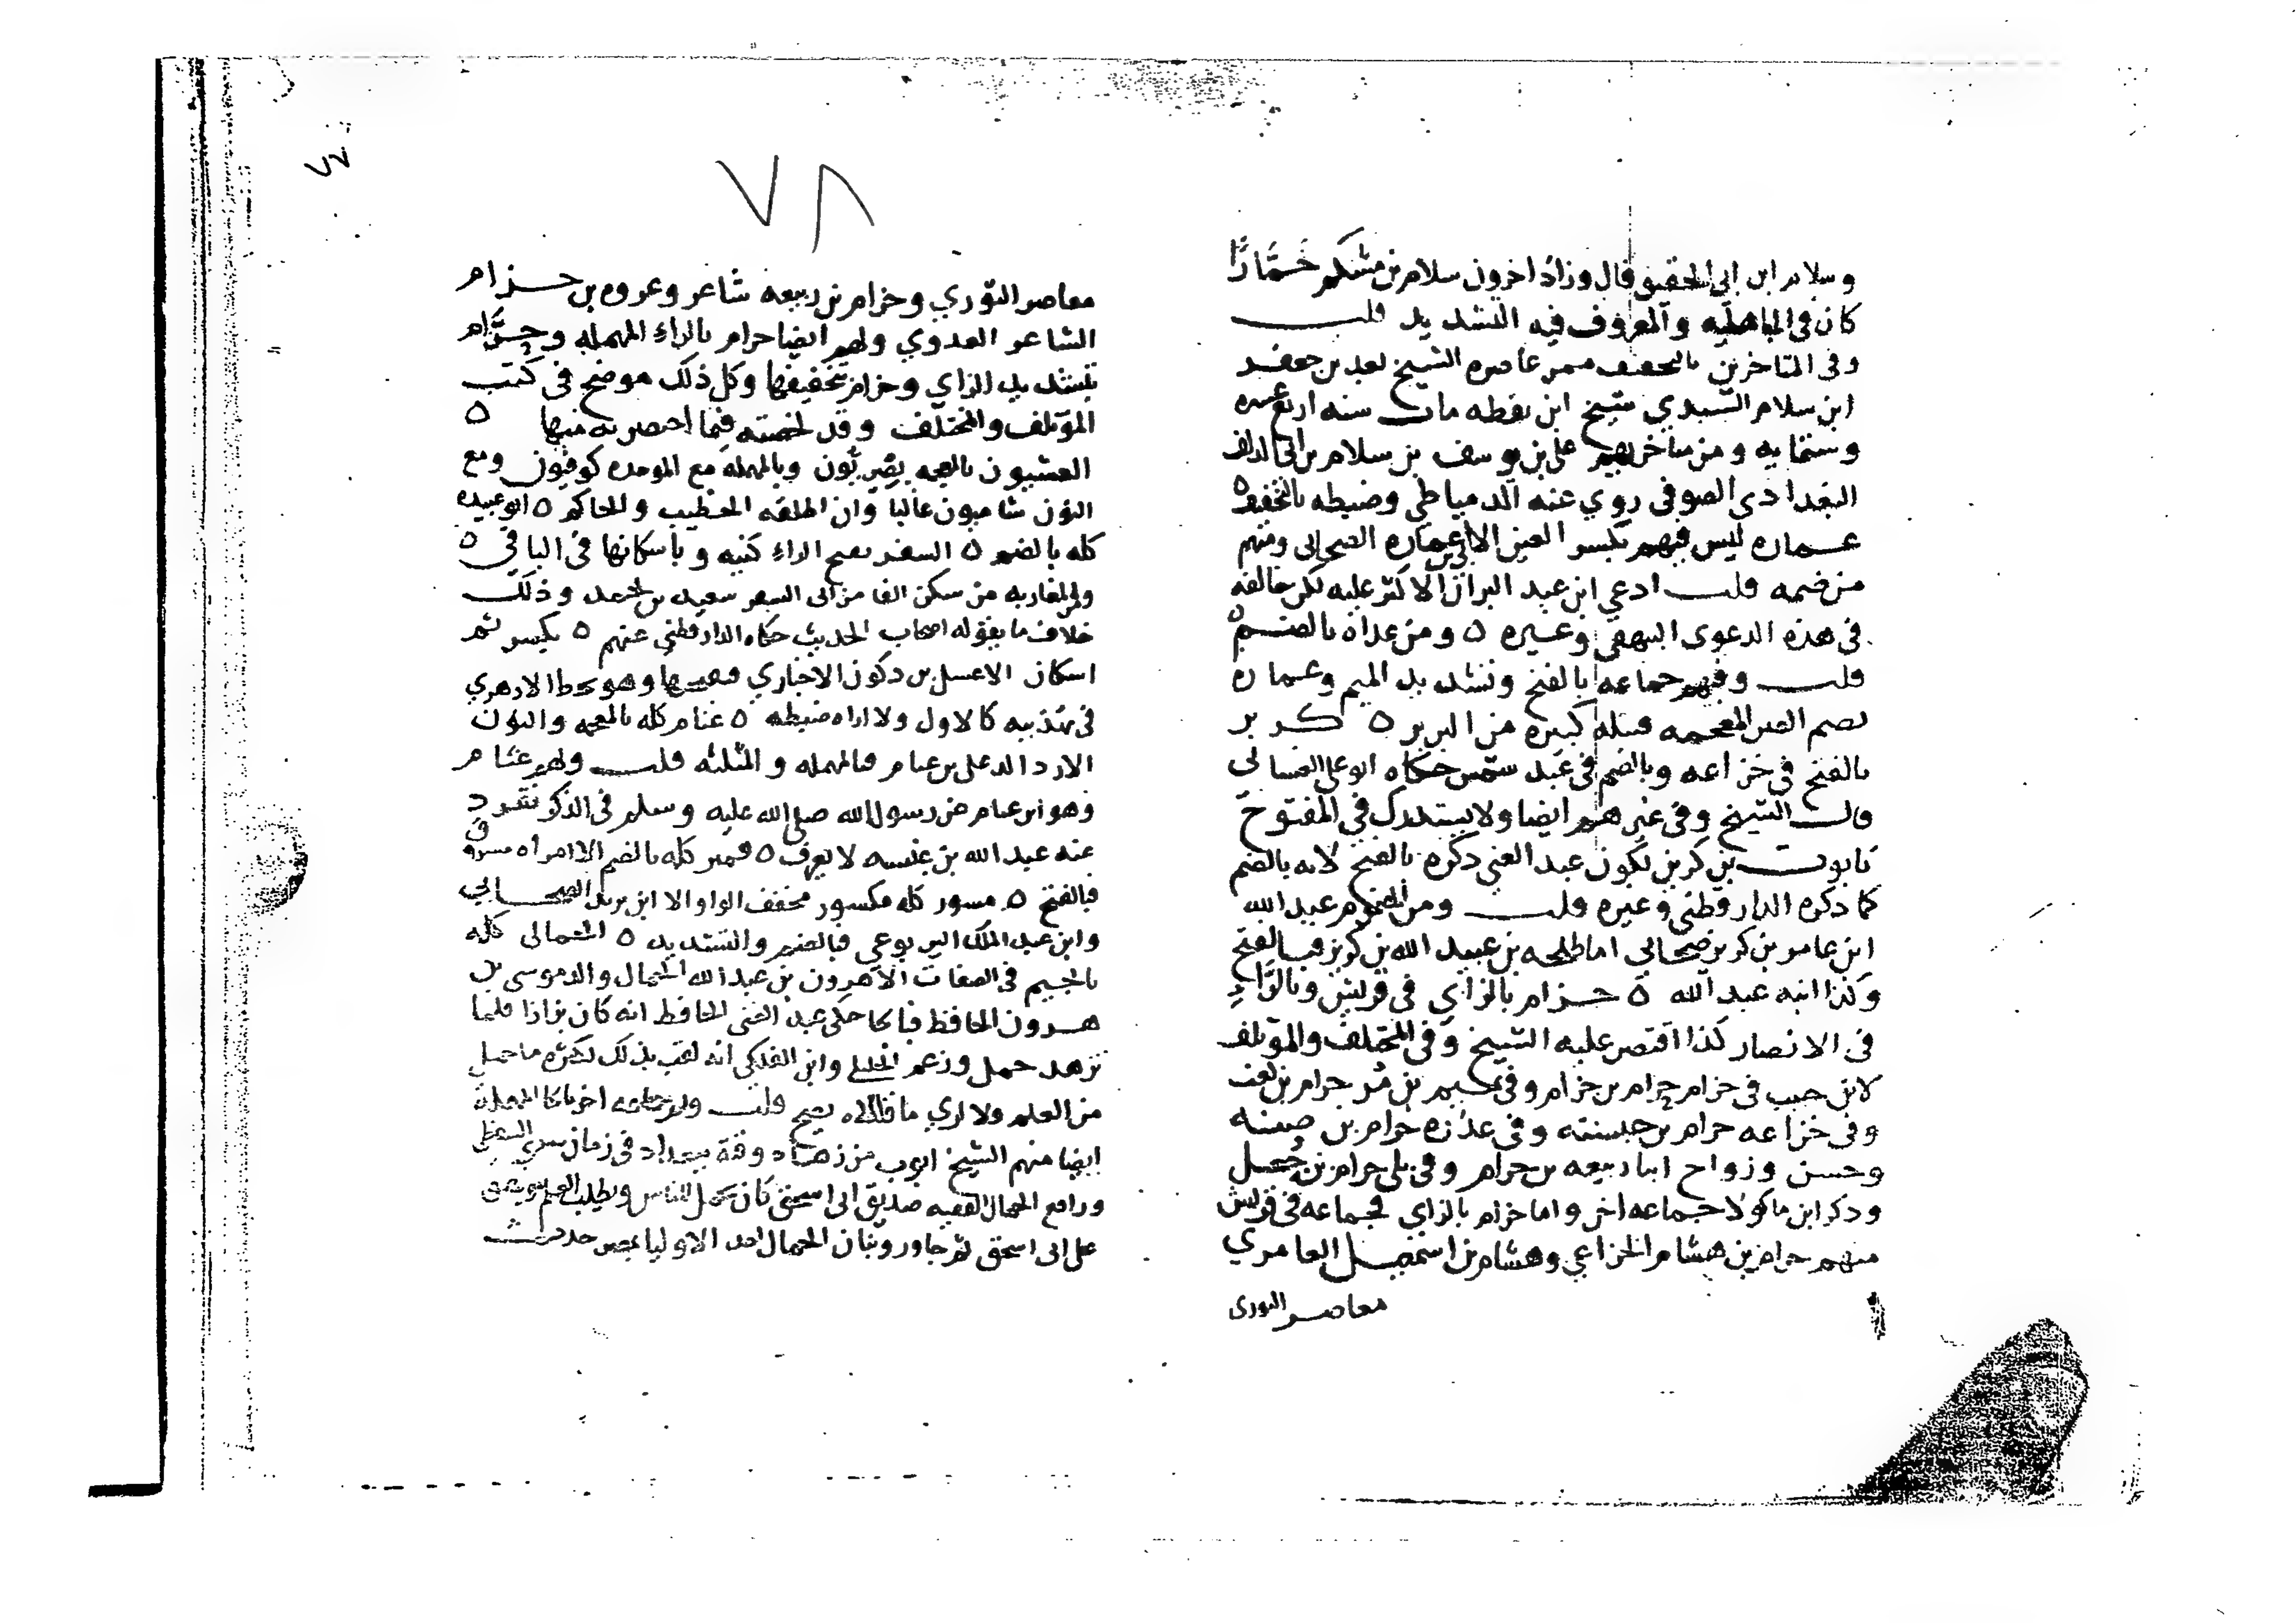 وسلام ابن ابي الحقيق قال وزاد اخرون سلام بن مشكم خَمَّارًا
كان في الجاهليه والمعروف فيه التشديد قلت
وفي المتاخرين بالتخفيف ممن عاصره الشيخ سعد بن جعفر
ابن سلام السيدي شيخ ابن نقطه مات سنه اربع عشره
وستمايه ومن متاخريهم علي بن يوسف بن سلام بن ابي الدلف
البغدادي الصوفي روي عنه الدمياطي وضبطه بالتخفيف ٥
عماره ليس فيهم بكسر العين الا ابي بن عماره الصحابي ومنهم
من ضمه قلت ادعي ابن عبد البر ان الاكثر عليه لكن خالفه
في هذه الدعوى البيهقي وغيره ٥ ومن عداه بالضم ٥
قلت وفيهم جماعه بالفتح وتشديد الميم وغماره
بضم الغين المعجمه قبيله كبيره من البربر ٥ كريز
بالفتح في خزاعه وبالضم في عبد شمس حكاه ابو علي الغساني
قال الشيخ وفي غيرهم ايضا ولا يستدرك في المفتوح
بايوب بن كريز لكون عبد الغني ذكره بالفتح لانه بالضم
كما ذكره الدارقطني وغيره قلت ومن المضموم عبد الله
ابن عامر بن كريز صحابي اما طلحه بن عبيد الله بن كريز فبالفتح
وكذا ابنه عبد الله ٥ حزام بالزاي في قريش وبالرَّاءِ
في الانصار كذا اقتصر عليه الشيخ وفي المختلف والمؤتلف
لابن حبيب في جذام حرام بن جذام وفي تميم بن مُر حرام بن كعب
وفي خزاعه حرام بن حبشيه وفي عذره حرام بن ضنه
وحسن وزواح ابنا ربيعه بن حرام وفي بلي حرام بن جُعل
وذكر ابن ماكولا جماعه اخر واما حزام بالزاي فجماعه في قريش
منهم حزام بن هشام الخزاعي وهشام بن اسمعيل العامري
معاصر الثوري
٧٨
معاصر الثوري وحزام بن ربيعه شاعر وعروه بن حزام
الشاعر العدوي ولهم ايضا حرام بالراء المهمله وخَزَّام
بتشديد الزاي وخزام بتخفيفها وكل ذلك موضح في كتب
المؤتلف والمختلف وقد لخصته فيما اختصرته منها ٥
العيشيون بالمعجمه بصريون وبالمهمله مع الموحده كوفيون ومع
النون شاميون غالبا وان اطلقه الخطيب والحاكم ٥ ابو عبيده
كله بالضم ٥ السفر بفتح الفاء كنيه وباسكانها في الباقي ٥
وللمغاربه من سكن الفا من ابي السفر سعيد بن يحمد وذلك
خلاف ما يقوله اصحاب الحديث حكاه الدارقطني عنهم ٥ عسل بكسر ثم
اسكان الا عسل بن ذكوان الاخباري ففتحها وهو بخط الازهري
في تهذيبه كالاول ولا اراه ضبطه ٥ غنام كله بالمعجمه والنون
الا والد علي بن عثام فالمهمله والمثلثه قلت ولهم غنام
وهو ابن غنام عن رسول الله صلى الله عليه وسلم في الذكر تفرد
عنه عبد الله بن عنبسه لا يعرف ٥ قمير كله بالضم الا امراه مسروق
فبالفتح ٥ مسور كله مكسور مخفف الواو الا ابن يزيد الصحابي
وابن عبد الملك اليربوعي فبالضم والتشديد ٥ الجمال كله
بالجيم في الصفات الا هرون بن عبد الله الحمال والد موسى بن
هرون الحافظ فبالحا حكى عبد الغني الحافظ انه كان بزازا فلما
تزهد حمل وزعم الخليلي وابن الفلكي انه لقب بذلك لكثره ما حمل
من العلم ولا اري ما قالاه يصح قلت ولهم جماعه اخر بالحا المهمله
ايضا منهم الشيخ ايوب من زهاد وقته ببغداد في زمان سري السقطي
ورافع الحمال الفقيه صديق ابي اسحق كان يحمل للناس ويطلب العلم
على ابي اسحق ثم جاور وبنان الحمال احد الاوليا بمصر حدث